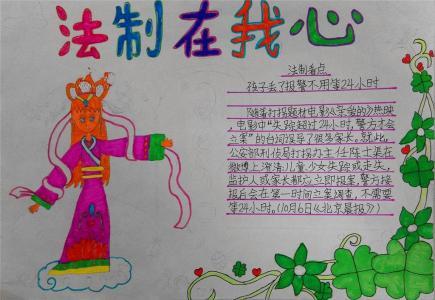 法制在我心
法制看点
孩子丢了报警不用等24小时
随着打拐题材电影《亲爱的》热映,
电影中“失踪超过24小时,警方才会
立案”的台词误导了很多家长,就此,
公安部刑侦局打拐办主任陈士渠在
微博上澄清,儿童少女失踪或走失,
监护人或家长都应立即报案,警方接
报后会在第一时间立案调查,不需要
等24小时。(10月6日《北京晨报》)